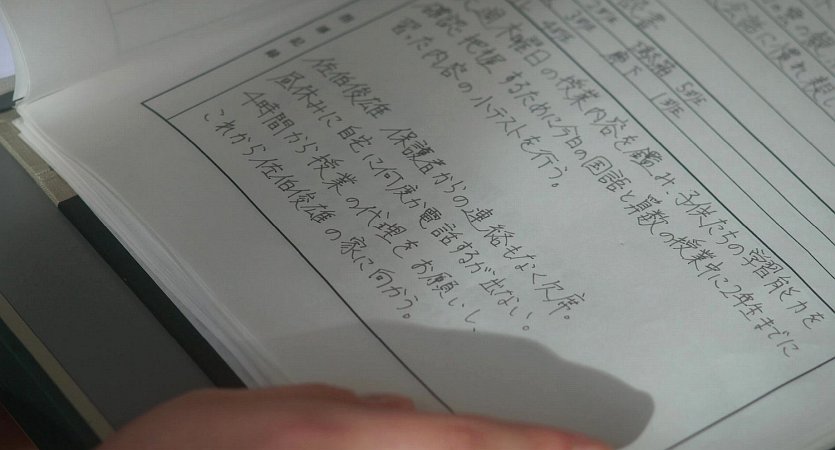 廊下 1班
週木曜日の授業内容を鑑み、子供たちの学習能力を
確認把握するために今日の国語と算数の授業中に2年生までに
習った内容の小テストを行う。
佐伯俊雄 保護者からの連絡もなく欠席。
昼休みに自宅に何度か電話するが出ない。
4時間から授業の代理をお願いし、
これから佐伯俊雄の家に向かう。